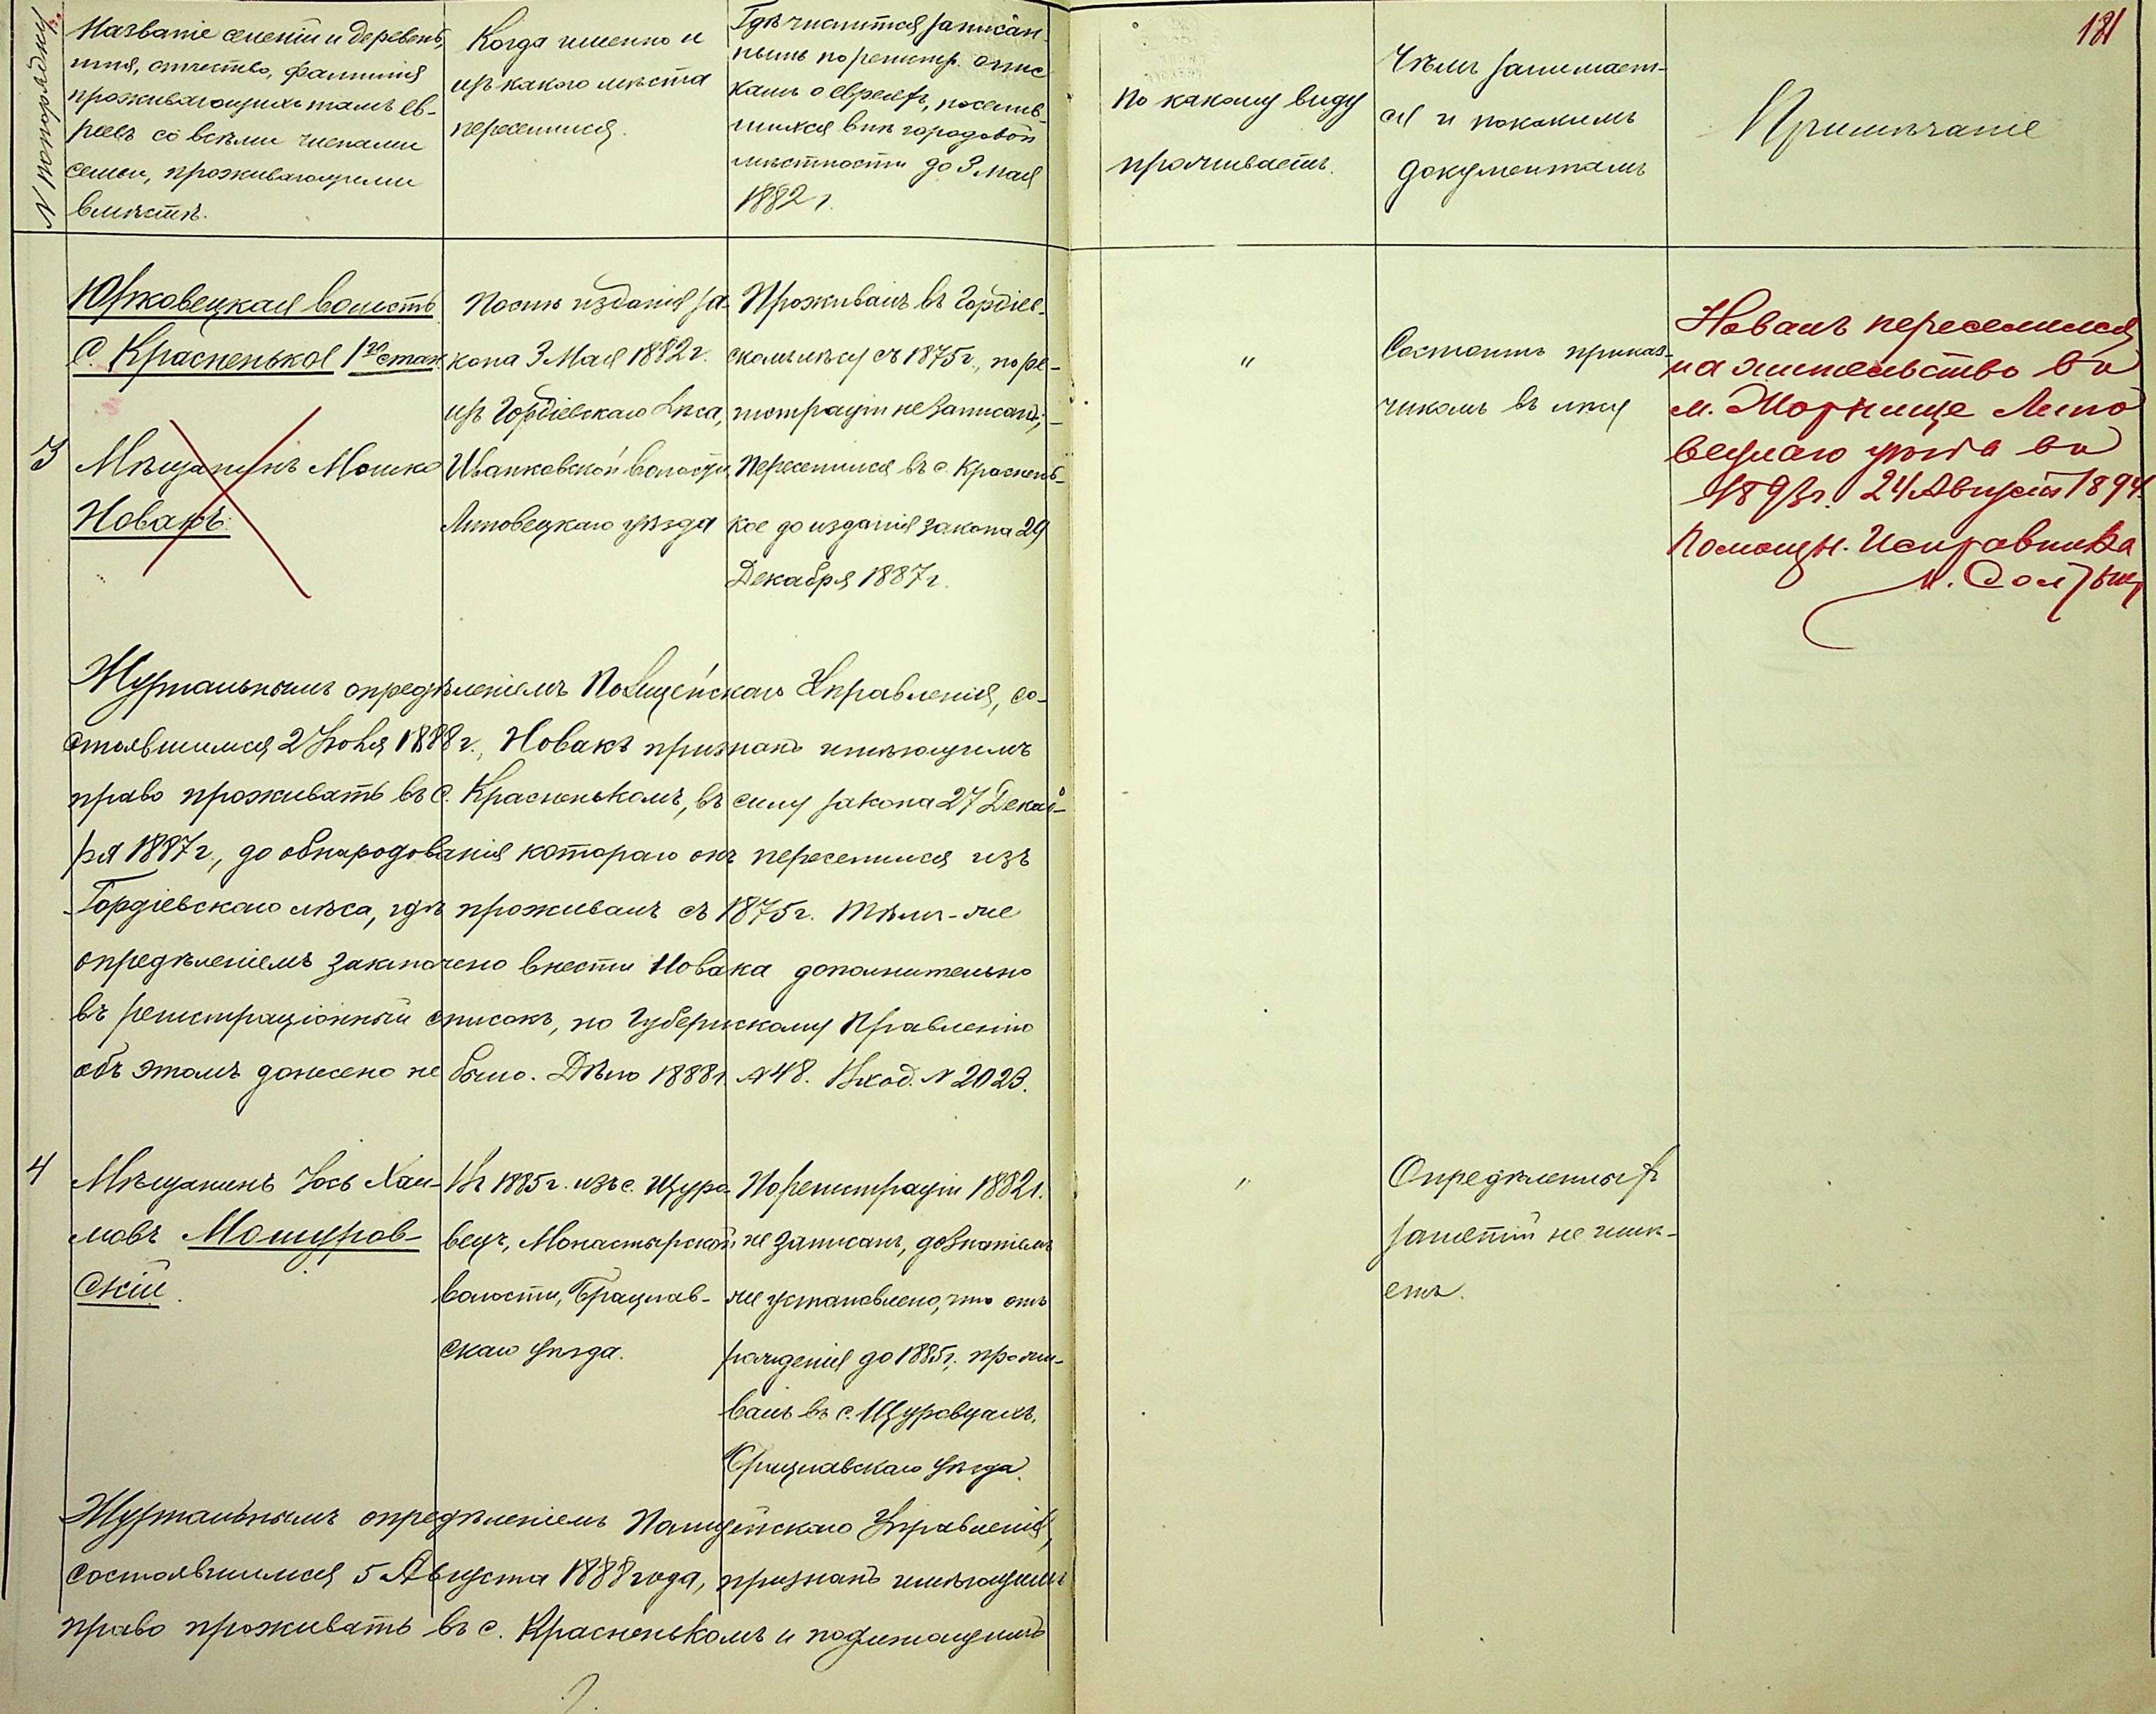 181
№ по порядку.
Названіе селеній и деревень,
имя, отчество, фамилія
проживающихъ тамъ ев-
реевъ со всѣми членами
семьи, проживающими
вмѣстѣ.
Когда именно и
изъ какого мѣста
переселился.
Гдѣ числится записан-
нымъ по регистр. спис
камъ о евреяхъ, поселив-
шихся внѣ городовой
мѣстности до 3 Мая
1882 г.
По какому виду
проживаетъ.
Чѣмъ занимает-
ся и по какимъ
документамъ
Примѣчаніе
Юрковецкая волость
С. Красненькое 1го стан.
3
Мѣщанинъ Мошко
Новакъ.
Послѣ изданія за-
кона 3 Мая 1882 г.
изъ Гордіевскаго лѣса,
Иванковской волости,
Липовецкаго уѣзда
Проживалъ въ Гордіев-
скомъ лѣсу съ 1875 г., по ре-
гистраціи не записанъ;
переселился въ с. Краснень-
кое до изданія закона 29
Декабря 1887 г.
"
Состоитъ приказ-
чикомъ въ лѣсу
Новакъ переселился
на жительство въ
м. Жорнище Липо
вецкаго уѣзда въ
1893 г. 24 Августа 1894
Помощн. Исправника
Журнальнымъ опредѣленіемъ Полицейскаго Управленія, со-
стоявшимся 2 Іюня 1888 г., Новакъ признанъ имѣющимъ
право проживать въ с. Красненькомъ, въ силу закона 27 Декаб-
ря 1887 г., до обнародованія котораго онъ переселился изъ
Гордіевскаго лѣса, гдѣ проживалъ съ 1875 г. Тѣмъ-же
опредѣленіемъ заключено внести Новака дополнительно
въ регистраціонный списокъ, но Губернскому Правленію
объ этомъ донесено не было. Дѣло 1888 г. № 48. Вход. № 2023.
4
Мѣщанинъ Іось Хаи-
мовъ Мошуров-
скій.
Въ 1885 г. изъ с. Щуро-
вецъ, Монастырской
волости, Брацлав-
скаго уѣзда.
По регистраціи 1882 г.
не записанъ, дознаніемъ
же установлено, что отъ
рожденія до 1885 г. прожи-
валъ въ с. Щуровцахъ,
Брацлавскаго уѣзда.
"
Опредѣленныхъ
занятій не имѣ-
етъ.
Журнальнымъ опредѣленіемъ Полицейскаго Управленія,
состоявшимся 5 Августа 1888 года, признанъ имѣющимъ
право проживать въ с. Красненькомъ и подлежащимъ